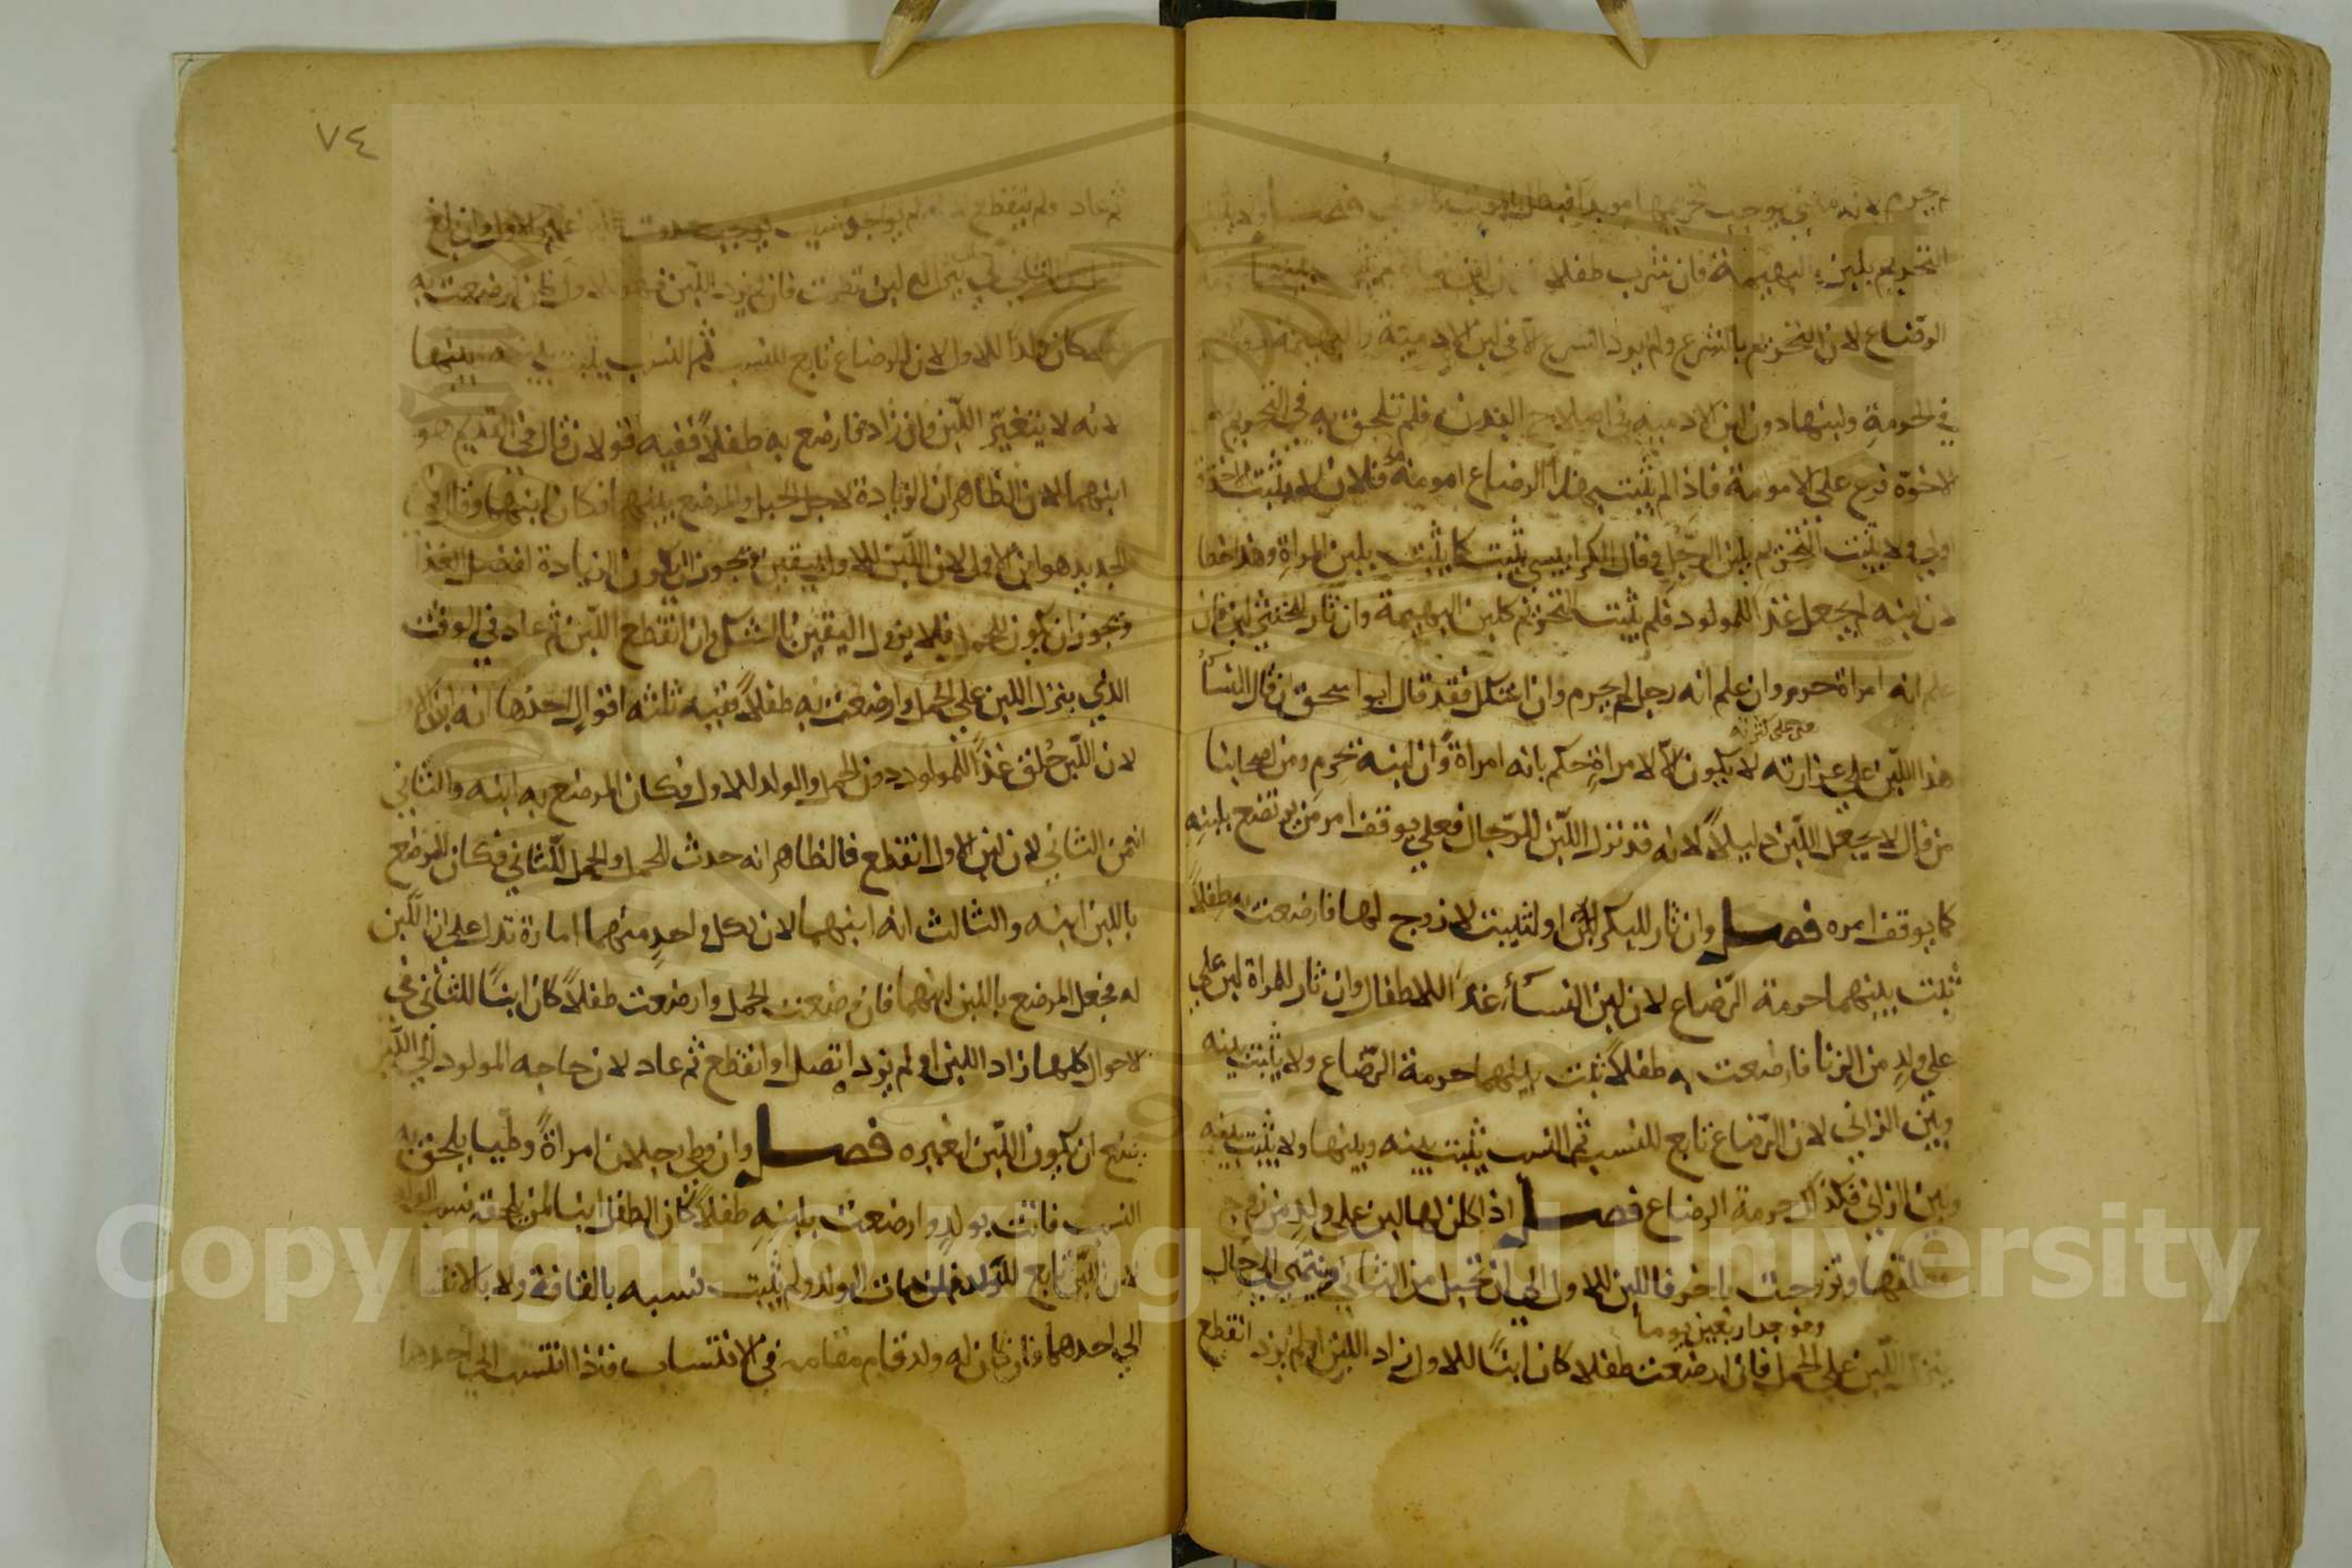 لم يحرم لانه معنى يوجب تحريمها موبدا فبطل بالموت كالوطي فصل ولا يثبت
التحريم بلبن البهيمة فان شرب طفلان من لبن
الرضاع لان التحريم بالشرع ولم يرد الشرع الا في لبن الادمية والبهيمة دون الادمية
في الحرمة ولبنها دون لبن الادمية في اصلاح البدن فلم تلحق به في التحريم
لاخوة فرع على الامومة فاذا لم يثبت بهذا الرضاع امومة فلان لا يثبت به الاخوة
اولى ولا يثبت التحريم بلبن الرجل وقال الكرابيسي يثبت كما يثبت بلبن المراة وهذا خطا
لان لبنه لم يجعل غذا للمولود فلم يثبت به التحريم كلبن البهيمة وان ثار للخنثى لبن فان
علم انه امراة حرم وان علم انه رجل لم يحرم وان اشكل فقد قال ابو اسحق ان قال النسأ
هذا اللبن على غزارته لا يكون الا لامراة حكم بانه امراة وان لبنه تحرم ومن اصحابنا
من قال لا يجعل اللبن دليلاً لانه قد نزل اللبن للرجال فعلى يوقف امر من يرتضع بلبنه
كما يوقف امره فصل وان ثار للبكر لبن او لثيب لا زوج لها فارضعت به طفلاً
ثبت بينهما حرمة الرضاع لان لبن النسأ غذا للاطفال وان ثار لامراة لبن على
على ولد من الزنا فارضعت به طفلاً ثبت بينهما حرمة الرضاع ولا يثبت بينه
وبين الزاني لان الرضاع تابع للنسب ثم النسب يثبت بينه وبينها ولا يثبت بينه
وبين الزاني فكذلك حرمة الرضاع فصل اذا كان لها لبن على ولد من زوج
فطلقها وتزوجت باخر فاللبن للاول الى ان تحبل من الثاني وينتهي الى حال
وهو جدار بعين يوما
ينزل اللبن على الحمل فان ارضعت طفلا كان ابناً للاول زاد اللبن او لم يزد انقطع
٧٤
ثم عاد ولم ينقطع لانه لم يوجد سبب يوجب حدوث اللبن غير الاول وان بلغ
الحمل من الثاني الى حال ينزل اللبن نظرت فان لم يزد اللبن فهو للاول فان ارضعت به
طفلا كان ولدا للاول لان الرضاع تابع للنسب ثم النسب يثبت بينها
لانه لا يتغير اللبن وان زاد فارضع به طفلاً ففيه قولان قال في القديم هو
ابنهما لان الظاهر ان الزيادة لاجل الحبل والمرضع بلبنهما فكان ابنهما وقال في
الجديد هو ابن الاول لان اللبن للاول بيقين ويجوز ان تكون الزيادة لفضل الغذا
وتجوز ان يكون للحمل فلا يزول اليقين بالشك وان انقطع اللبن ثم عاد في الوقت
الذي ينزل اللبن على الحمل وارضعت به طفلاً ففيه ثلثة اقوال احدها انه ابن الاول
لان اللبن خلق غذاً للمولود دون الحمل والولد للاول فكان المرضع به ابنه والثاني
انه من الثاني لان لبن الاول انقطع فالظاهر انه حدث للحمل والحمل للثاني فكان المرضع
باللبن ابنه والثالث انه ابنهما لان لكل واحد منهما امارة تدل على ان اللبن
له فجعل المرضع باللبن ابنهما فان وضعت الحمل وارضعت طفلاً كان ابناً للثاني في
الاحوال كلها زاد اللبن او لم يزد اتصل او انقطع ثم عاد لان حاجه المولود الى اللبن
يمنع ان يكون اللبن لغيره فصل وان وطي رجلان امراة وطيا يلحق به
النسب فاتت بولد وارضعت بلبنه طفلاً كان الطفل ابنا لمن يلحقه نسب الولد
لان اللبن تابع للولد فان مات الولد ولم يثبت نسبه بالقافة ولا بالانتساب
الى احدهما فان كان له ولد قام مقامه في الانتساب فاذا انتسب الى احدهما
Copyright © King Saud University
1957